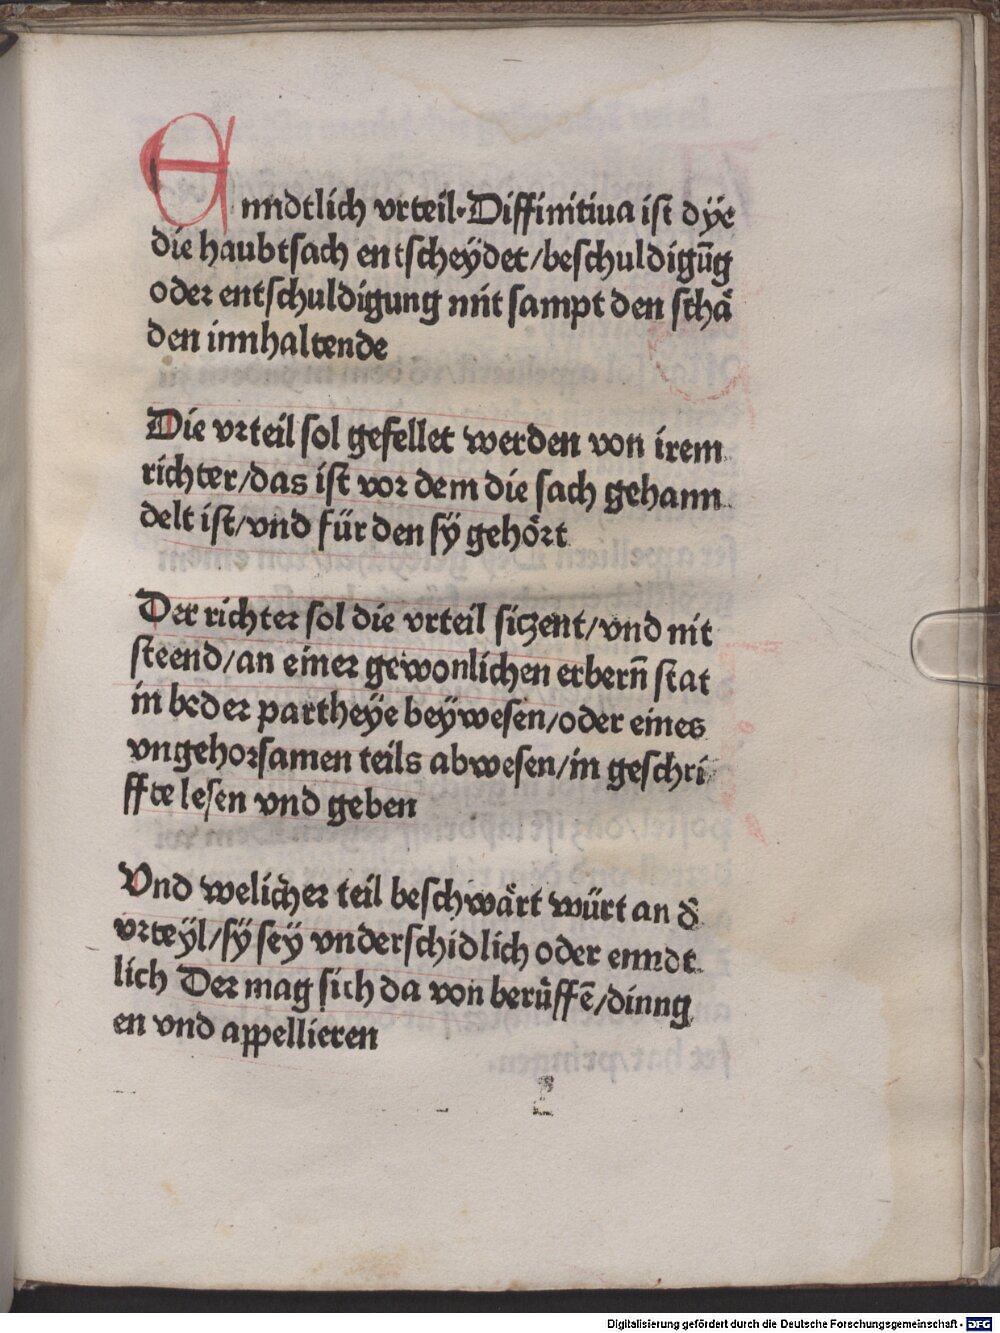 Enndtlich vrteil·Diffinitiua ist dÿe
die haubtsach entscheÿdet/beschuldigūg
oder entschuldigung mit sampt den schå
den innhaltende
Die vrteil sol gefellet werden von irem
richter/das ist vor dem die sach gehann
delt ist/vnd für den sÿ gehört
Der richter sol die vrteil siczent/vnd nit
steend/an einer gewonlichen erbern̄ stat
in beder partheÿe beÿwesen/oder eines
vngehorsamen teils abwesen/in geschri
ffte lesen vnd geben
Vnd welicher teil beschwårt würt an d̃
vrteÿl/sÿ seÿ vnderschidlich oder enndt
lich Der mag sich da von berůffē/dinng
en vnd appellieren
Digitalisierung gefördert durch die Deutsche Forschungsgemeinschaft - DFG